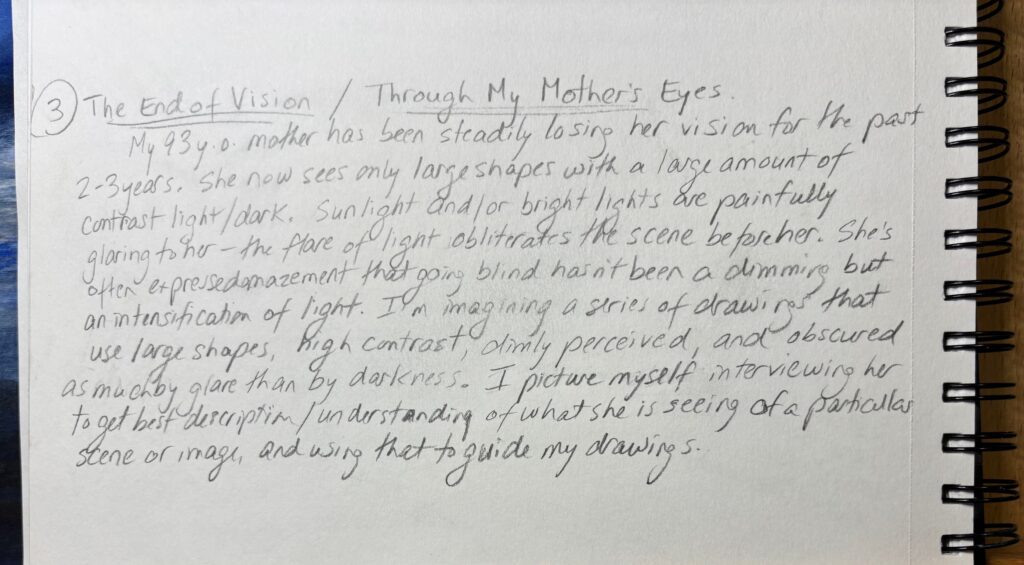 3 The End of Vision / Through My Mother's Eyes.
My 93 y.o. mother has been steadily losing her vision for the past
2-3 years. She now sees only large shapes with a large amount of
contrast light/dark. Sunlight and/or bright lights are painfully
glaring to her — the flare of light obliterates the scene before her. She's
often expressed amazement that going blind hasn't been a dimming but
an intensification of light. I'm imagining a series of drawings that
use large shapes, high contrast, dimly perceived, and obscured
as much by glare than by darkness. I picture myself interviewing her
to get best description/understanding of what she is seeing of a particular
scene or image, and using that to guide my drawings.